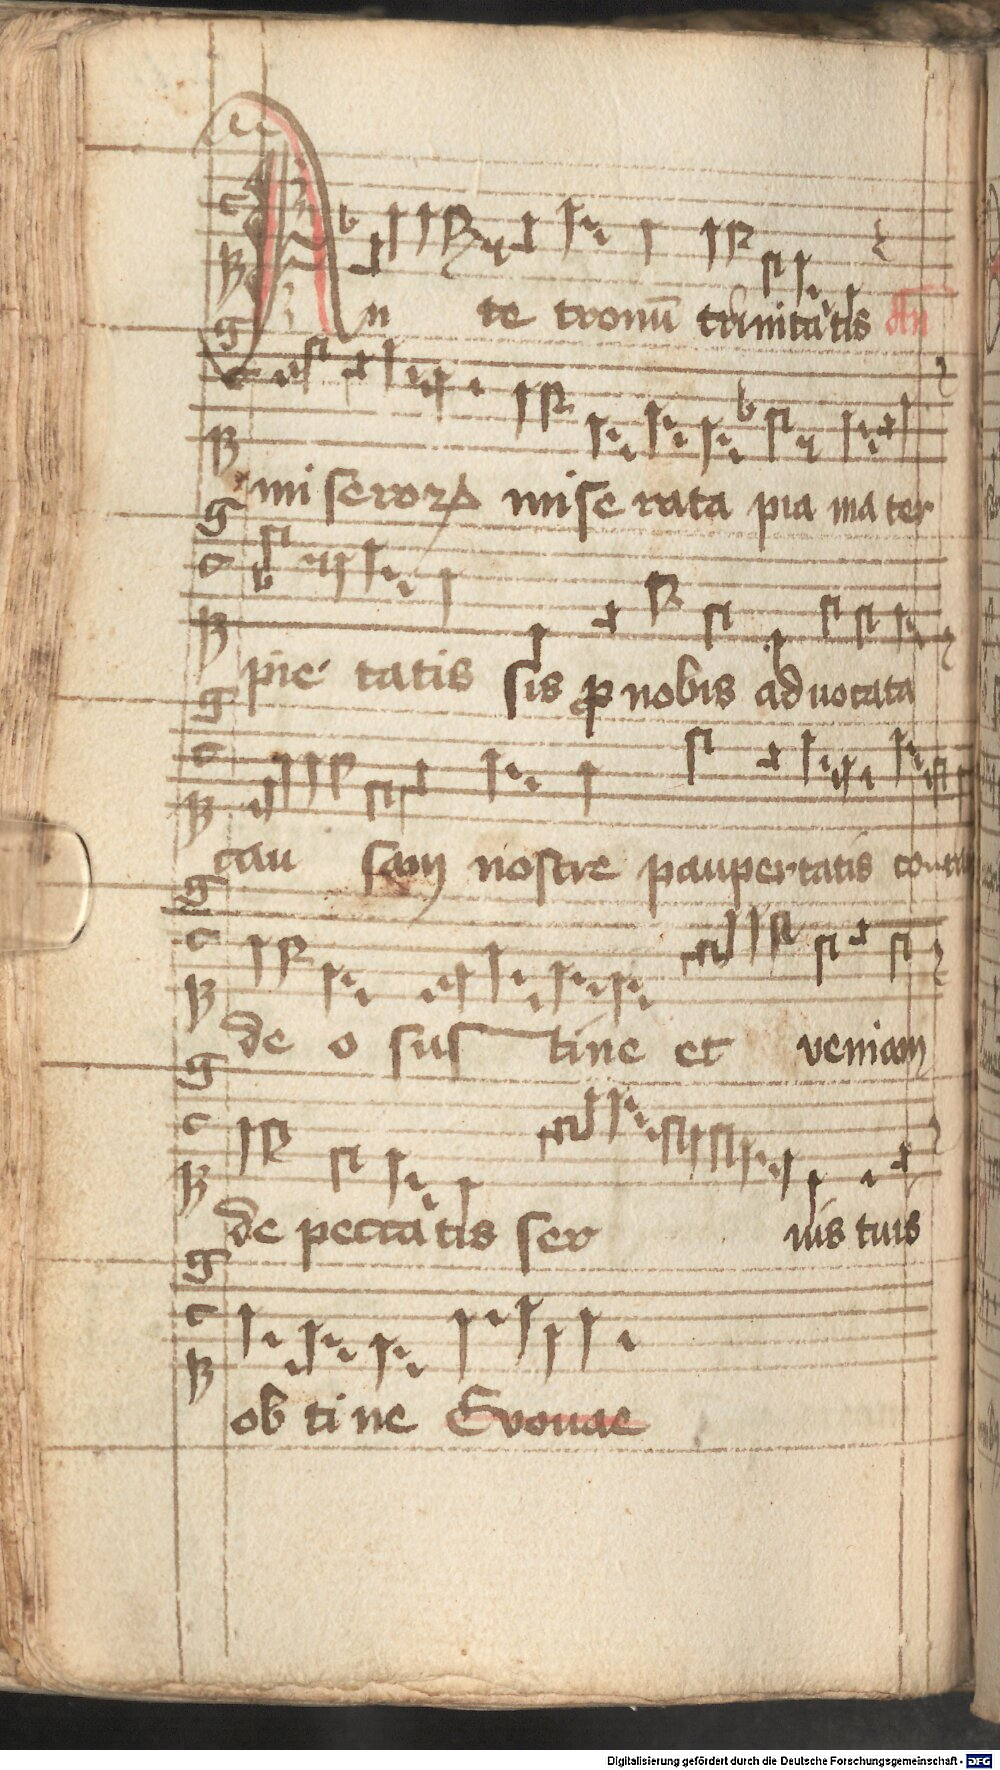 An te tronū trinitatis An
miseroꝝ mise rata pia mater
pie tatis sis ꝓ nobis aduocata
cau sam nostre paupertatis coram
de o sus tine et veniam
de peccatis ser uis tuis
ob tine Evouae
Digitalisierung gefördert durch die Deutsche Forschungsgemeinschaft - DFG